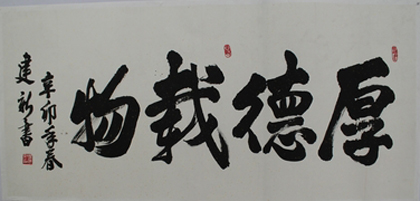 厚德载物
辛卯年春
建新书